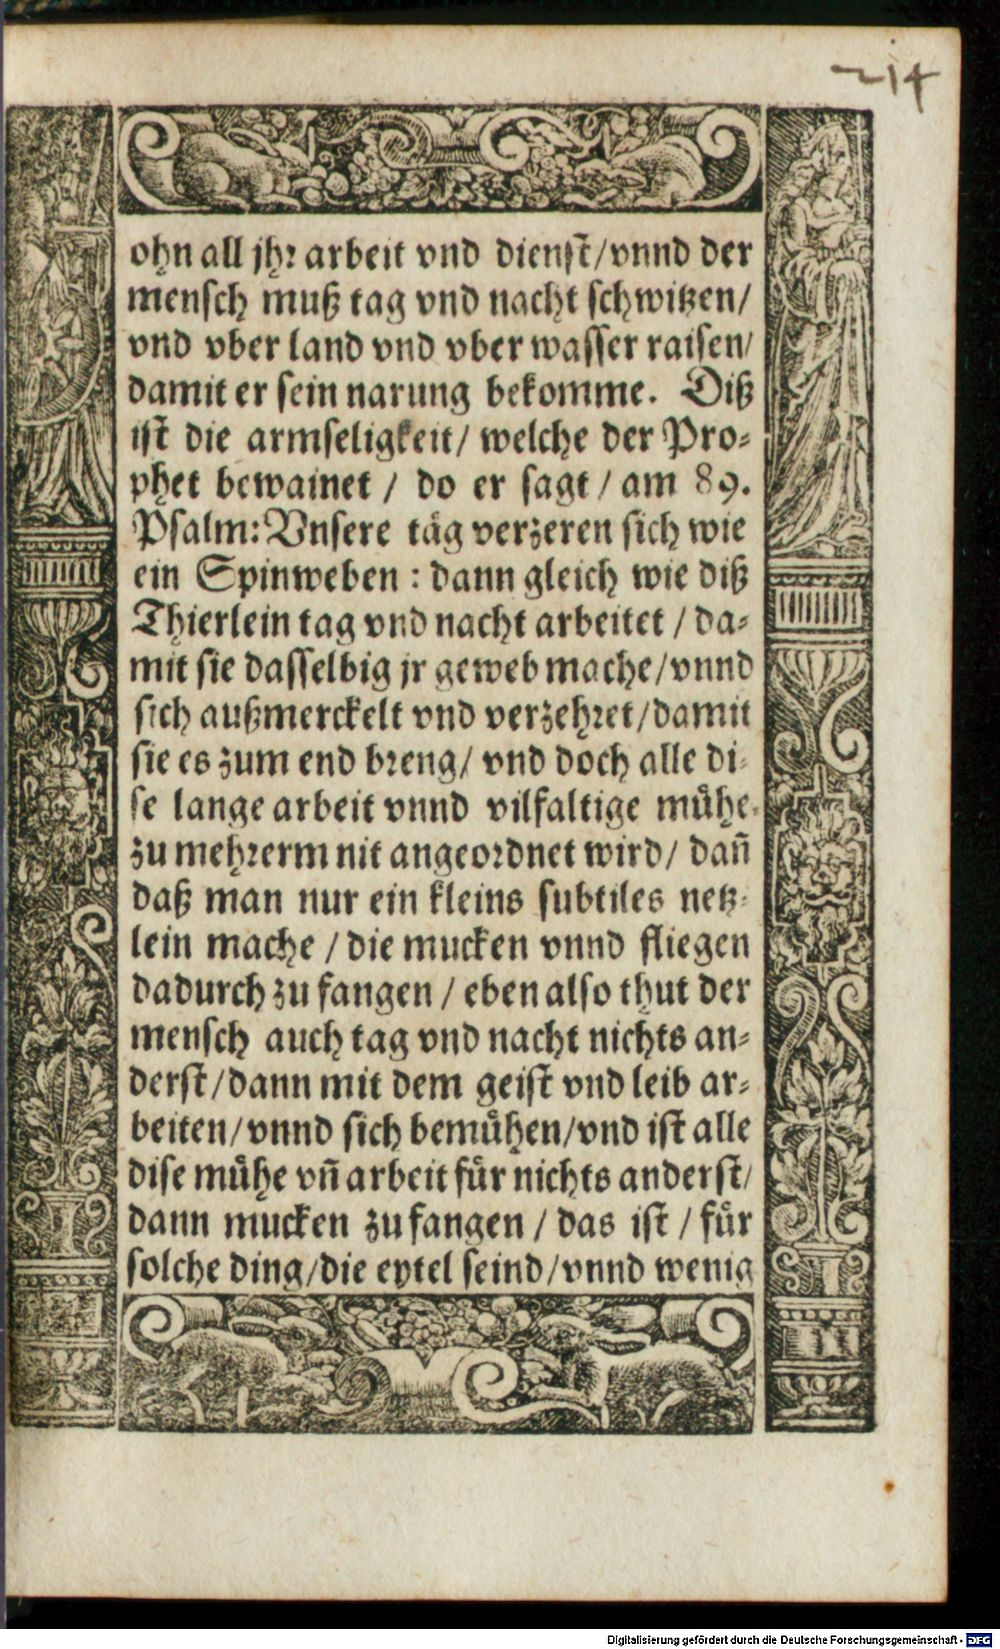 214
ohn all jhr arbeit vnd dienst/vnnd der
mensch muß tag vnd nacht schwitzen/
vnd vber land vnd vber wasser raisen/
damit er sein narung bekomme. Diß
ist die armseligkeit/ welche der Pro-
phet bewainet / do er sagt / am 89.
Psalm: Vnsere täg verzeren sich wie
ein Spinweben : dann gleich wie diß
Thierlein tag vnd nacht arbeitet / da-
mit sie dasselbig jr geweb mache/vnnd
sich außmerckelt vnd verzehret/damit
sie es zum end breng/ vnd doch alle di-
se lange arbeit vnnd vilfaltige mühe
zu mehrerm nit angeordnet wird/ dañ
daß man nur ein kleins subtiles netz-
lein mache / die mucken vnnd fliegen
dadurch zu fangen / eben also thut der
mensch auch tag vnd nacht nichts an-
derst/dann mit dem geist vnd leib ar-
beiten/vnnd sich bemühen/vnd ist alle
dise mühe vñ arbeit für nichts anderst/
dann mucken zu fangen / das ist / für
solche ding/die eytel seind/vnnd wenig
Digitalisierung gefördert durch die Deutsche Forschungsgemeinschaft - DFG